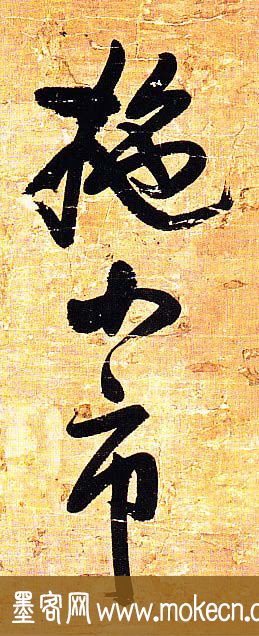 小市
墨客网 www.mokecn.c